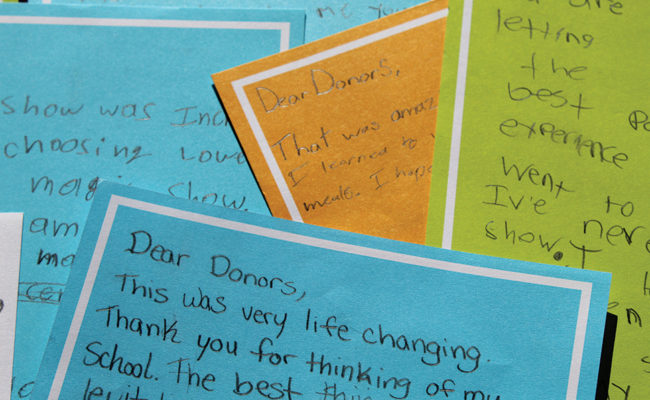 show was
choosing
magic show.
am
Dear Donor's,
That was
I learned to
meals. I hope
are
letting
the
best
experience
went to
Iv'e never
show. I
Dear Donors,
This was very life changing.
Thank you for thinking of my
School. The best